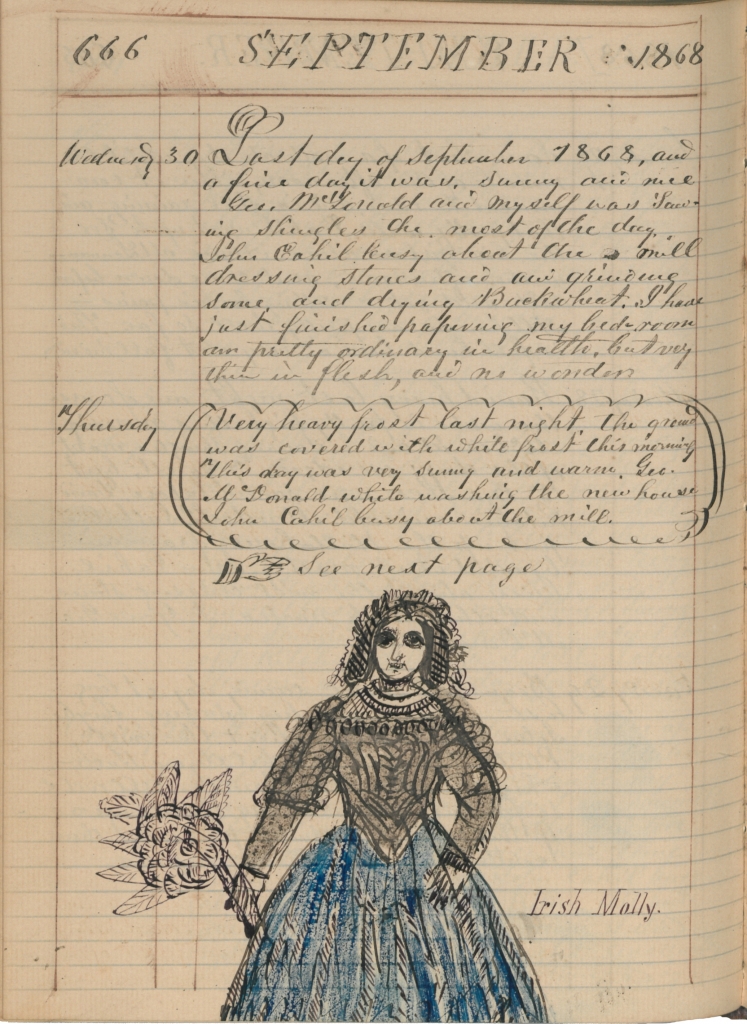 666 SEPTEMBER 1868
Wednesdy 30 Last dey of September 1868, and
a fine day it was, sunny and nice
Geo. McDonald and myself was Saw-
ing shingles the most of the day.
John Cahil busy about the mill
dressing stones and grinding
some, and drying Buckwheat. I have
just finished papering my bed-room
am pretty ordinary in health, but very
thin in flesh, and no wonder
Thursdy Very heavy frost last night, the ground
was covered with white frost this morning
This day was very sunny and warm. Geo.
McDonald white washing the new house
John Cahil busy about the mill.
See next page
Irish Molly.